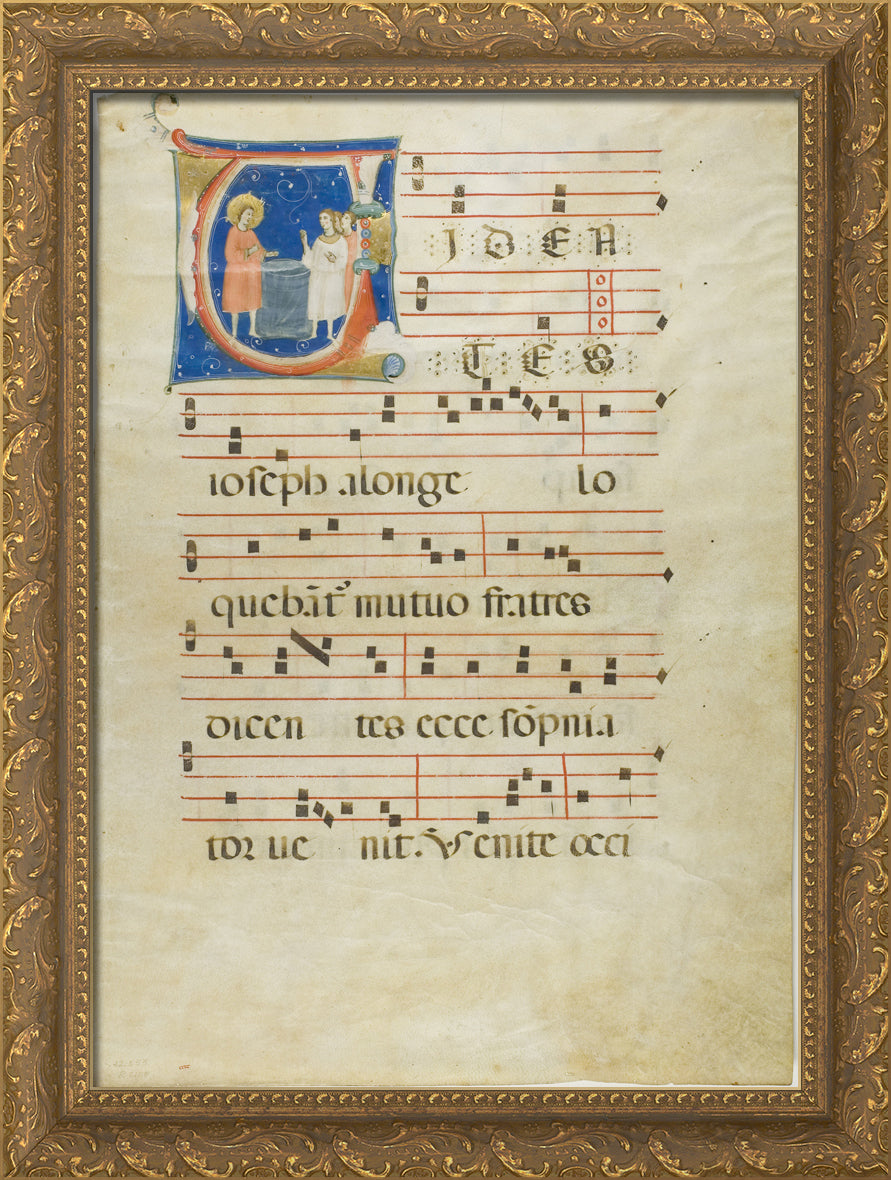 VIDEN
TES
ioseph alonge lo
quebāt᷒ mutuo fratres
dicen tes ecce sōpnia
tor ue nit. ℣ Venite occi